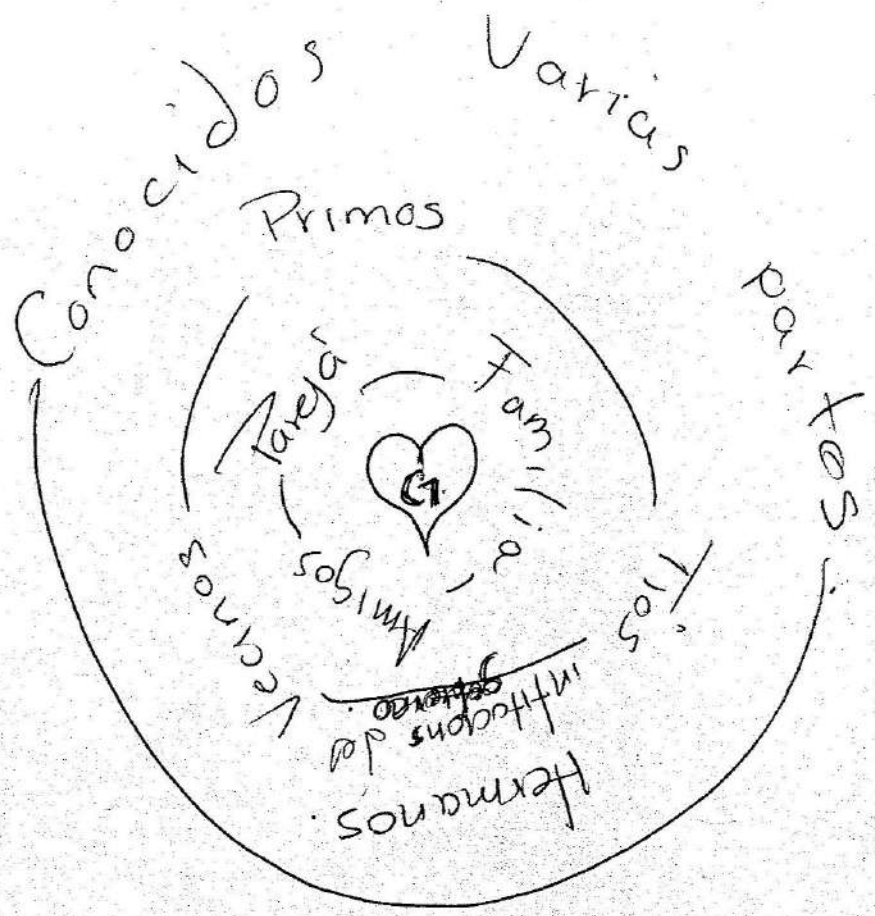 Conocidos Varias partes.
Primos
Tios
Hermanos.
intitucions del
gobierno.
Vecinos
Pareja
Familia
Amigos